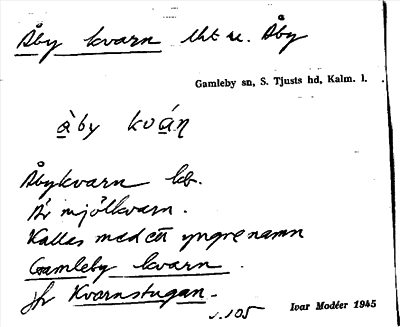 Åby kvarn lht u. Åby
Gamleby sn, S. Tjusts hd, Kalm. l.
à̱by kvá̱ṇ
Åbykvarn kb.
Är mjölkvarn.
Kallas med ett yngre namn
Gamleby kvarn.
jfr Kvarnstugan.
s. 105
Ivar Modéer 1945